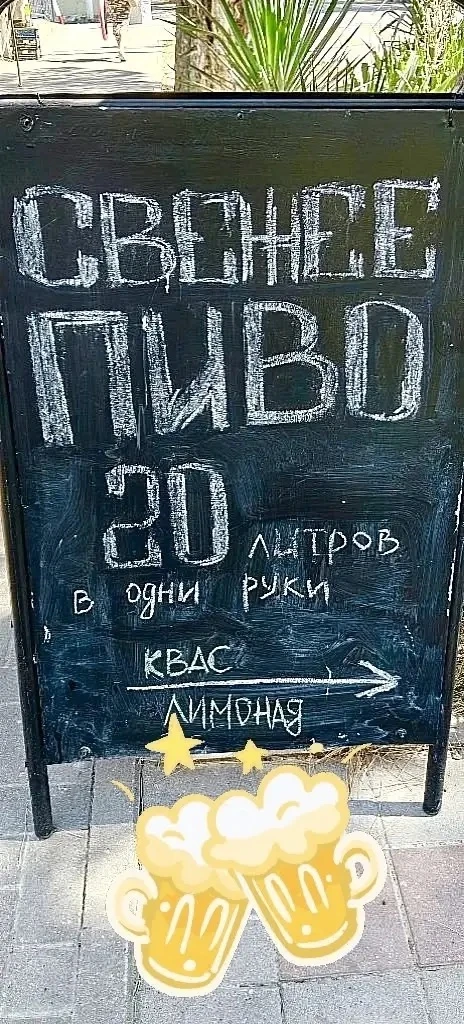 СВЕЖЕЕ
ПИВО
20 ЛИТРОВ
В ОДНИ РУКИ
КВАС
ЛИМОНАД